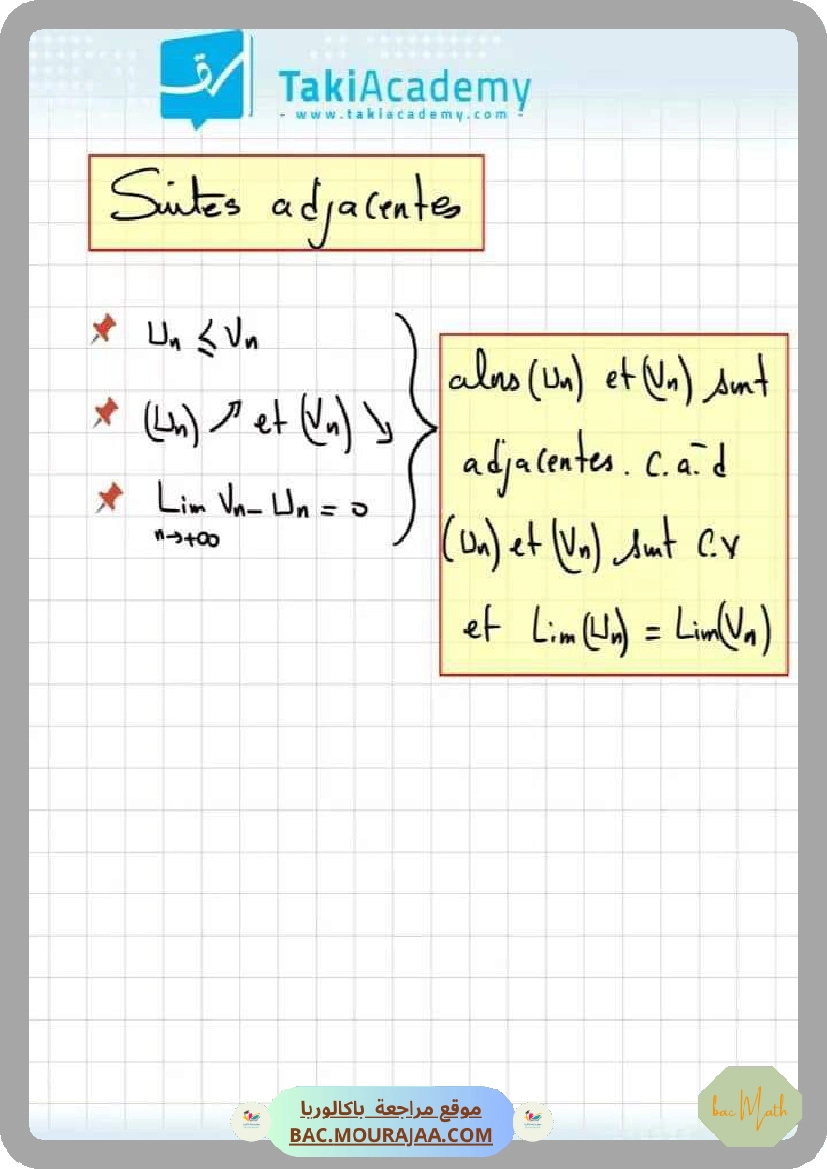 TakiAcademy
- www.takiacademy.com -
Suites adjacentes
Un ≤ Vn
(Un) ↗ et (Vn) ↘
Lim Vn - Un = 0
n→+∞
alors (Un) et (Vn) sont
adjacentes. c.a-d
(Un) et (Vn) sont c.v
et Lim (Un) = Lim(Vn)
موقع مراجعة باكالوريا
BAC.MOURAJAA.COM
bac Math